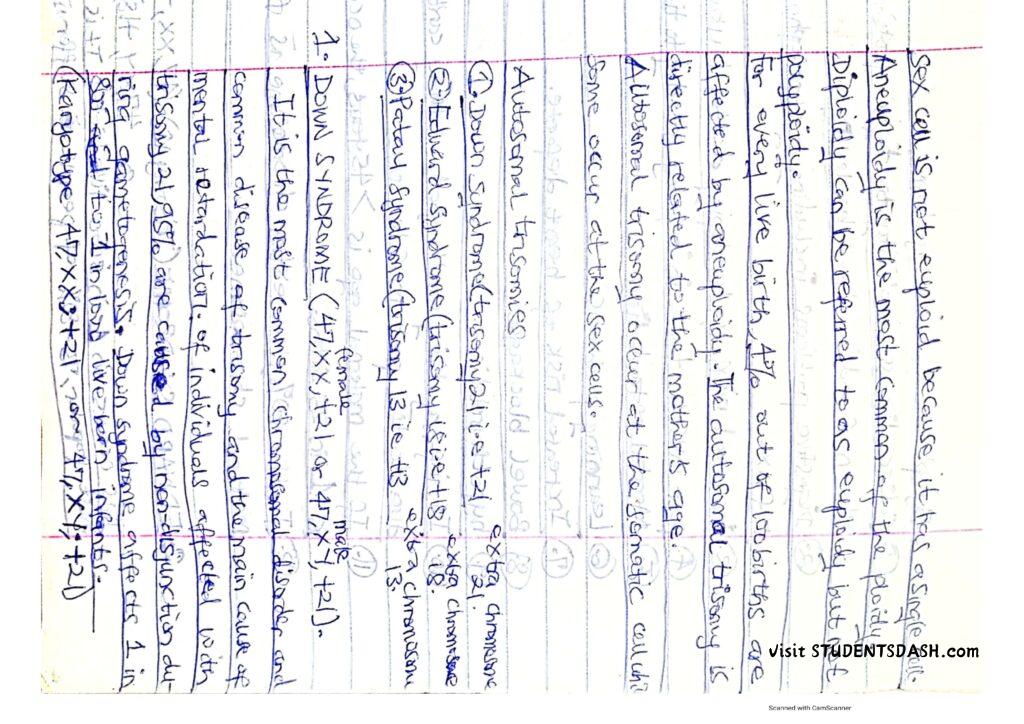 Sex cell is not euploid because it has a single cell.
Aneuploidy is the most common of the ploidy.
Diploidy can be referred to as euploidy but not
polyploidy.
For every live birth, 4% out of 100 births are
affected by aneuploidy. The autosomal trisomy is
directly related to the mother's age.
Autosomal trisomy occur at the somatic cell whi
some occur at the sex cells.
Autosomal trisomies
①. Down syndrome (trisomy 21 i.e +21 extra chromosome 21.
② Edward syndrome (trisomy 18 ie +18 extra chromosome 18.
③ Patau syndrome (trisomy 13 ie +13 extra chromosom 13.
female male
1. DOWN SYNDROME (47, XX, +21 or 47, XY, +21).
It is the most common chromosomal disorder and
common disease of trisomy and the main cause of
mental retardation. of individuals affected with
trisomy 21, 95% are caused by non-disjunction du-
ring gametogenesis. Down syndrome affects 1 in
800 to 1 in 1000 live born infants.
(Karyotype 47, XX; +21 47, XY; +21)
visit STUDENTSDASH.com
Scanned with CamScanner